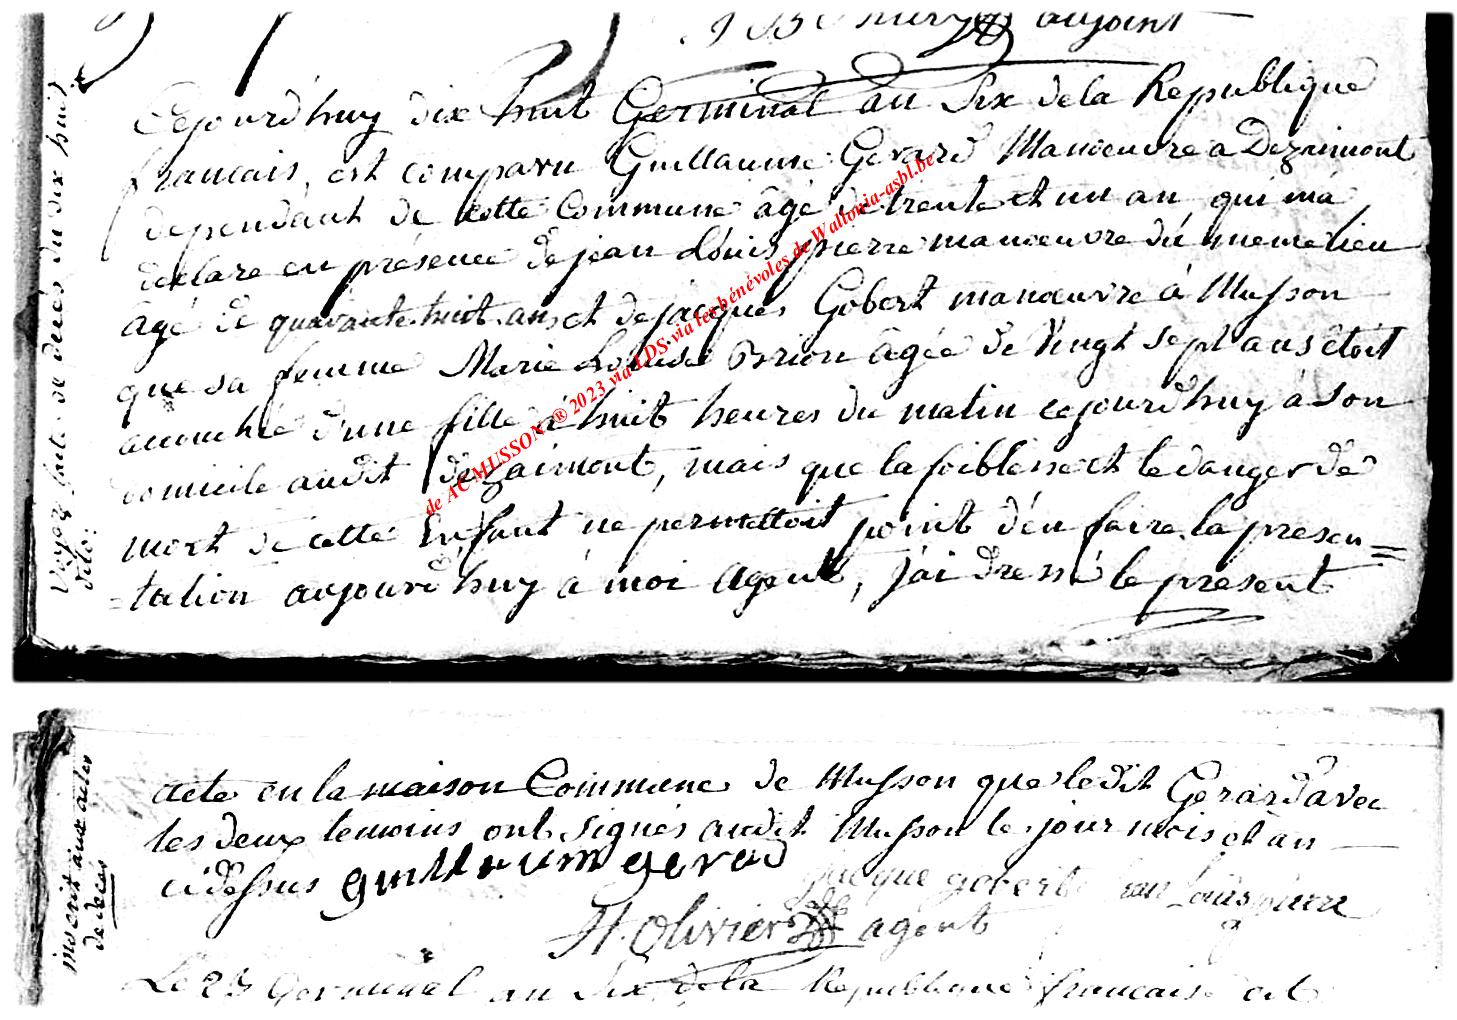 adjoint
Cejourd'huy dix huit Germinal an Six de la Republique
francais, est comparu Guillaume Gerard Manoeuvre a Dezaimont
dependant de cette Commune âgé de trente et un an qui m'a
declaré en présence de jean Louis pierre manoeuvre du meme lieu
âgé de quarante huit ans et de jacques Gobert manœuvre à Musson
que sa femme Marie Louise Brion âgée de vingt sept ans étoit
accouchée d'une fille à huit heures du matin cejourd'huy à son
domicile audit dezaimont, mais que la foiblesse et le danger de
mort de cette Enfant ne permettoit point d'en faire la presen=
=tation aujourd'huy à moi agent, j'ai dressé le present
Voyez acte de décès du dix huit
dito:
de AC MUSSON ® 2023 via LDS via les bénévoles de Wallonia-asbl.be
acte en la maison Commune de Musson que ledit Gerard avec
les deux temoins ont signés audit Musson le jour mois et an
ci dessus guillaum gerad jacque gobert jean Louis pierre
H. Olivier agent
inscrit aux actes
de deces
Le 23 Germinal an Six de la Republique francaise est